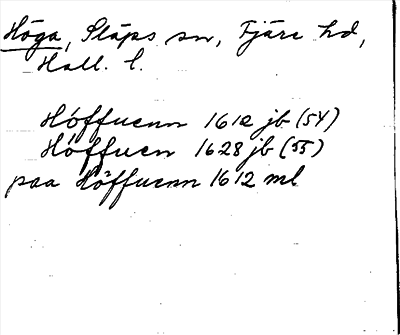 Höga, Släps sn, Fjäre hd,
Hall. l.
Höffuenn 1612 jb (54)
Höffuen 1628 jb (55)
paa Höffuenn 1612 ml